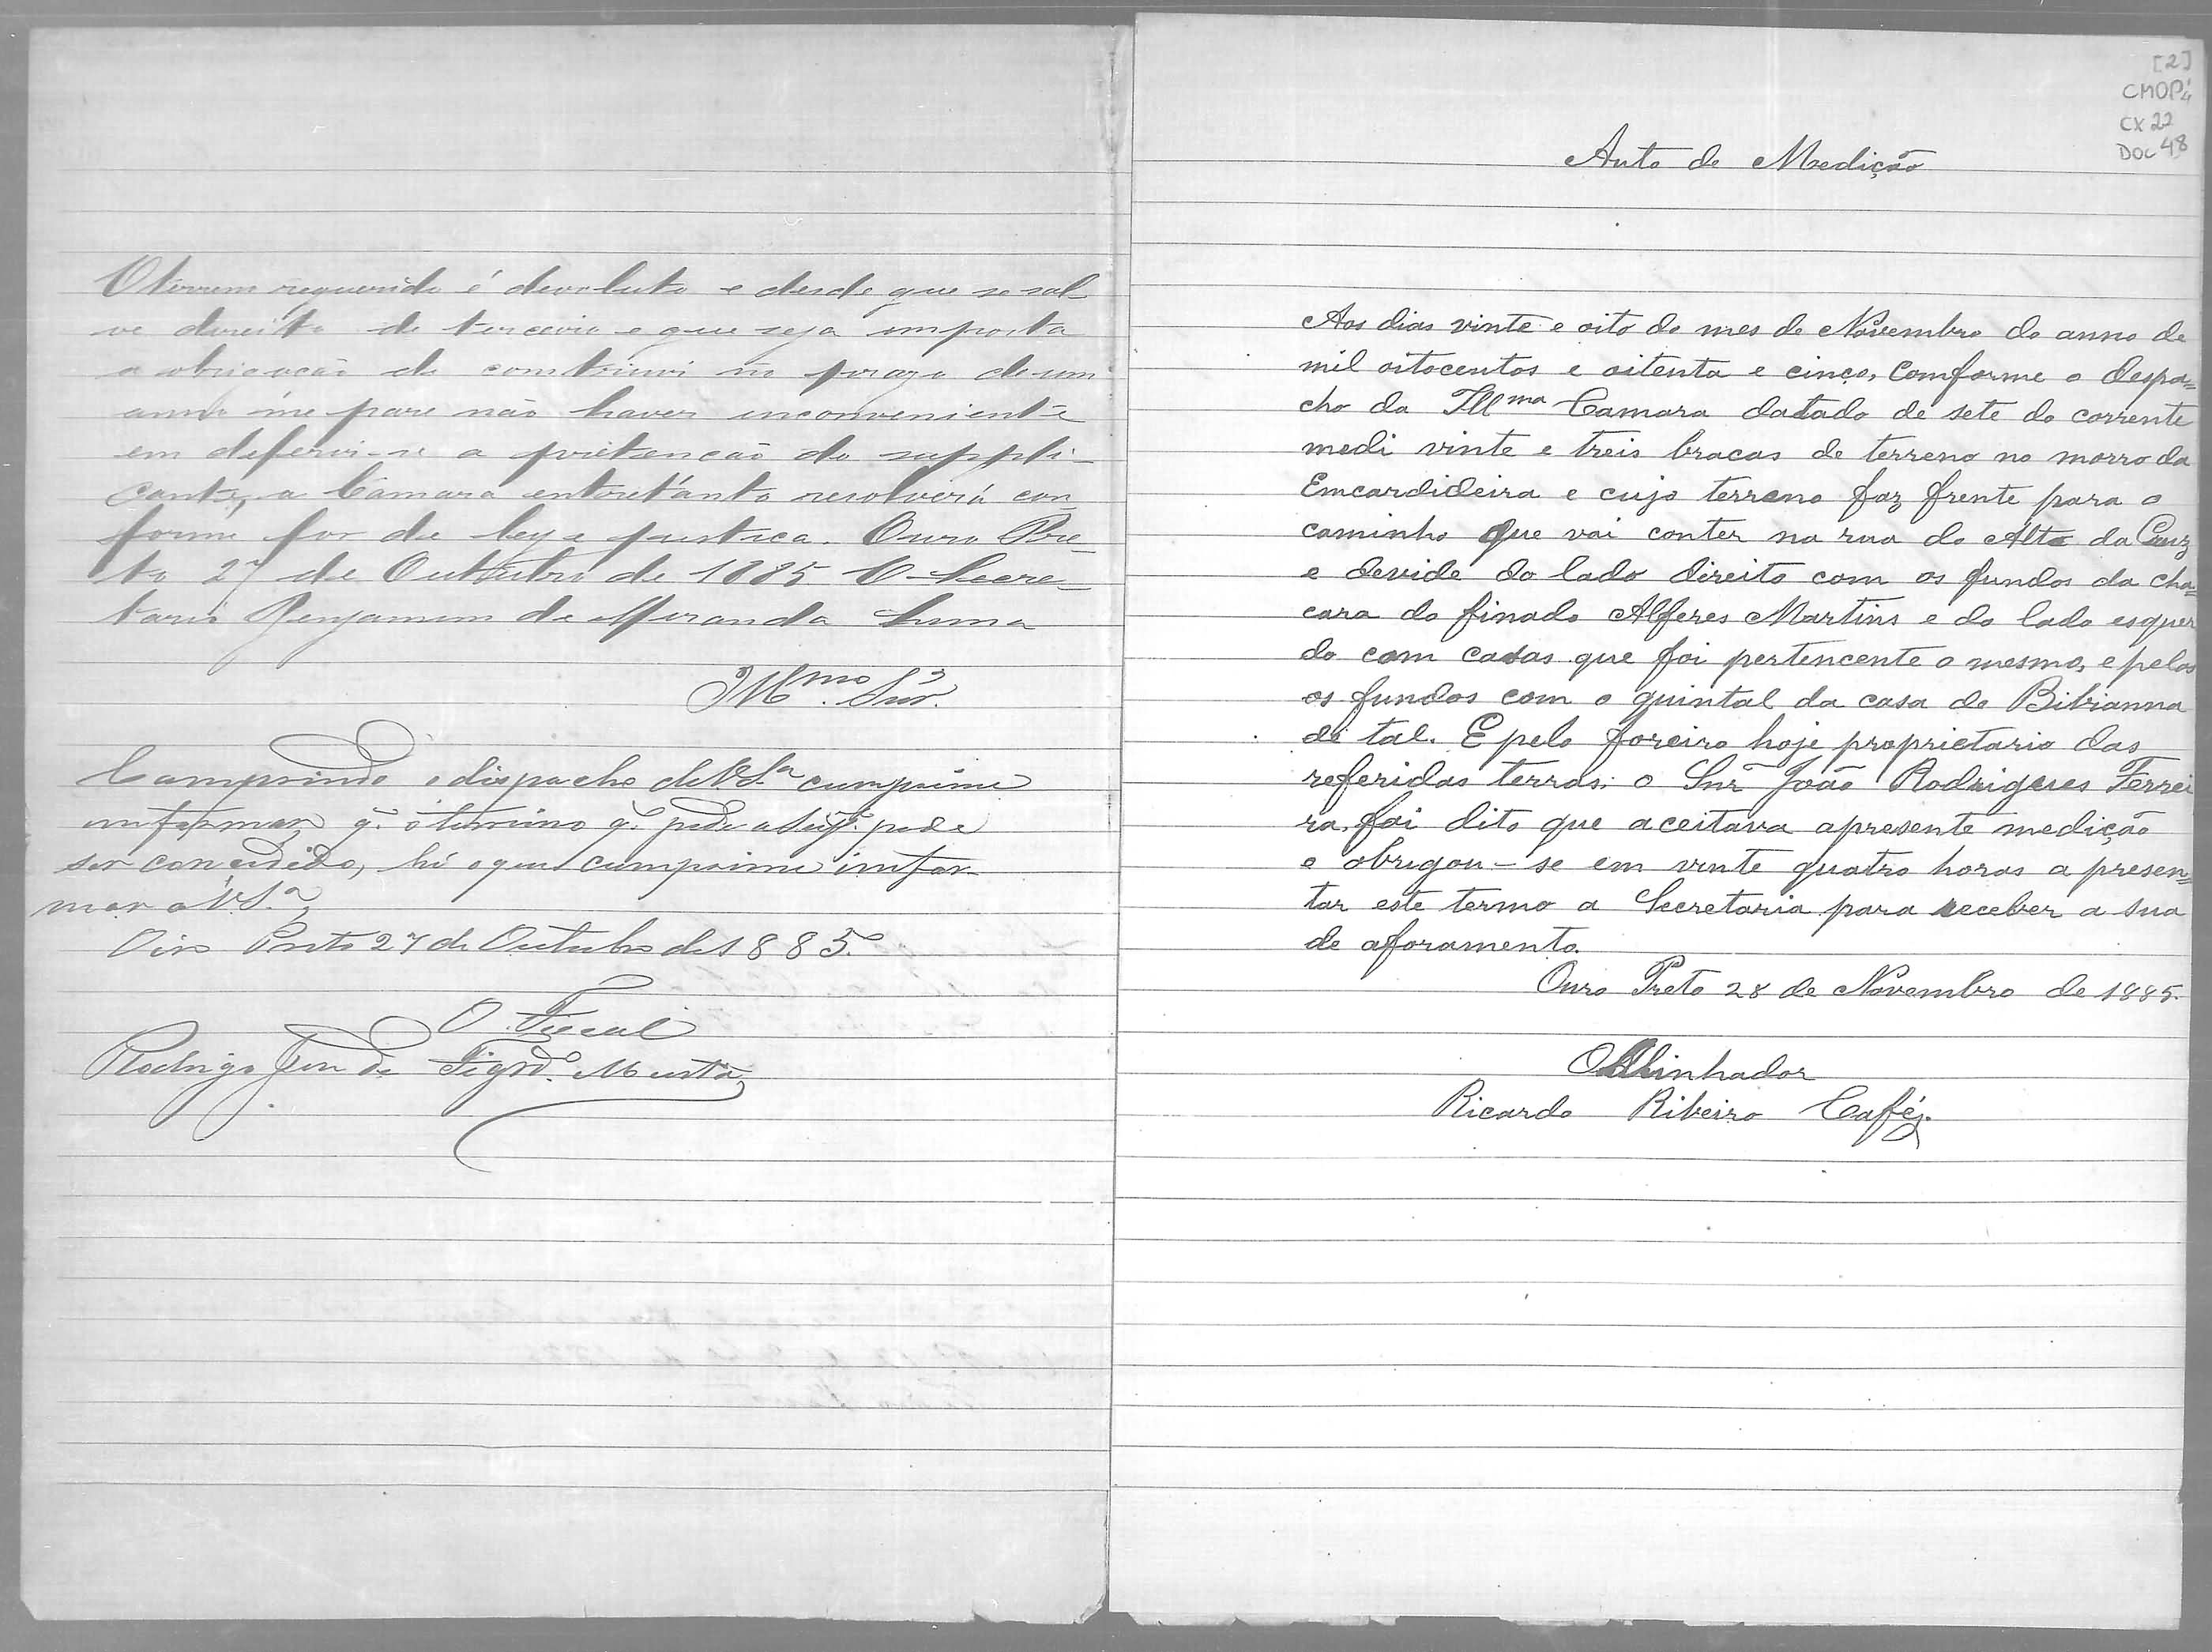 O terreno requerido é devoluto e desde que se sal-
ve direito de terceiro e que seja imposta
a obrigação de construir no prazo de um
anno me pare não haver inconveniente
em deferir-se a pretenção do suppli-
cante, a Camara entretanto resolverá con
forme for de ley e justica. Ouro Pre-
to 27 de Outubro de 1885 O Secre-
tario Benjamim de Miranda Lima
Illmo. Snr.
Comprindo o dispacho de V.Sª cumprime
imformar q. o terreino q. pede o Supp. pode
ser concedido, hé o que cumprime imfor-
mar a V.Sª,
Oiro Preto 27 de Outubro de 1885.
O Fiscal
Rodrigo José de Figrdo. Murta
[2]
CMOP
CX 22
DOC 48
Auto de Medição
Aos dias vinte e oito do mes de Novembro do anno de
mil oitocentos e oitenta e cinco, Comforme o despa=
cho da Illma Camara datado de sete do corrente
medi vinte e treis bracas de terreno no morro da
Emcardideira e cujo terreno faz frente para o
caminho que vai conter na rua do Alto da Cruz
e devide do lado direito com os fundos da cha=
cara do finado Alferes Martins e do lado esquer
do com casas que foi pertencente o mesmo, e pelos
os fundos com o quintal da casa de Bibianna
de tal. E pelo foreiro hoje proprietario das
referidas terras: o Snr João Rodrigues Ferrei
ra, foi dito que aceitava apresente medição
e obrigou-se em vinte quatro horas a presen=
tar este termo a Secretaria para receber a sua
de aforamento.
Ouro Preto 28 de Novembro de 1885.
O Alinhador
Ricardo Ribeiro Café